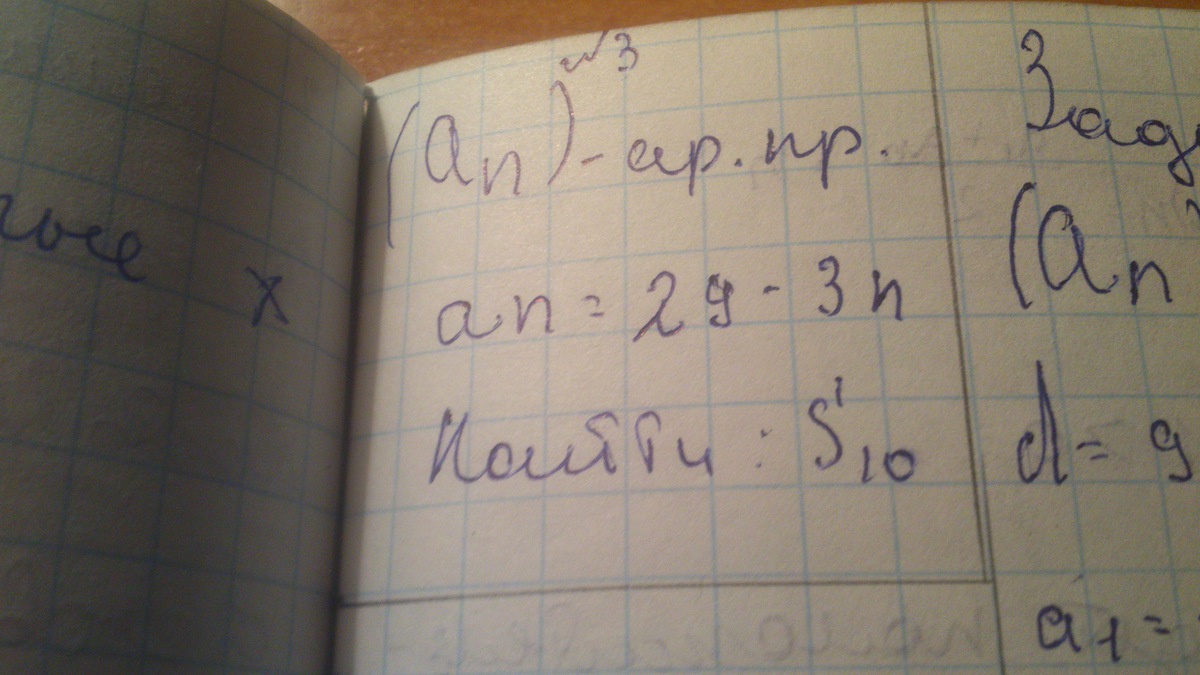 х
№3
(an) - ар. пр.
an = 29 - 3n
Найти : S10
Зад
(an
d = 9
a1 =